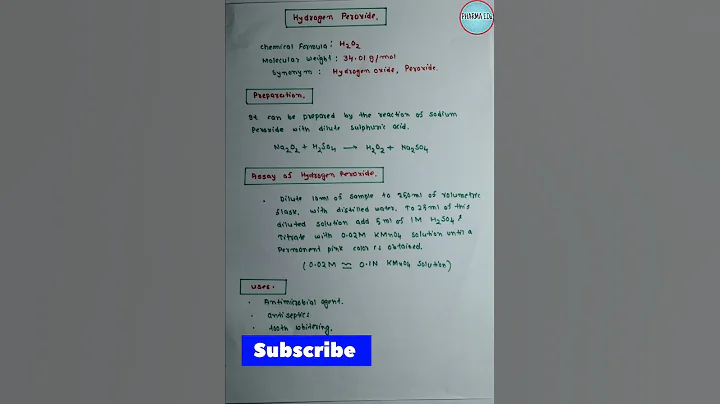 Hydrogen Peroxide.
PHARMA EDU
Chemical Formula : H₂O₂
Molecular Weight : 34.01 g/mol
Synonym : Hydrogen oxide, Peroxide.
Preparation.
It can be prepared by the reaction of sodium
Peroxide with dilute sulphuric acid.
Na₂O₂ + H₂SO₄ → H₂O₂ + Na₂SO₄
Assay of Hydrogen Peroxide.
• Dilute 10ml of sample to 250ml of volumetric
flask, with distilled water. To 25ml of this
diluted solution add 5ml of 1M H₂SO₄ &
Titrate with 0.02M KMnO₄ solution until a
Permanent pink color is obtained.
(0.02M ≃ 0.1N KMnO₄ solution)
Uses.
• Antimicrobial agent.
• antiseptics
• tooth whitering.
Subscribe